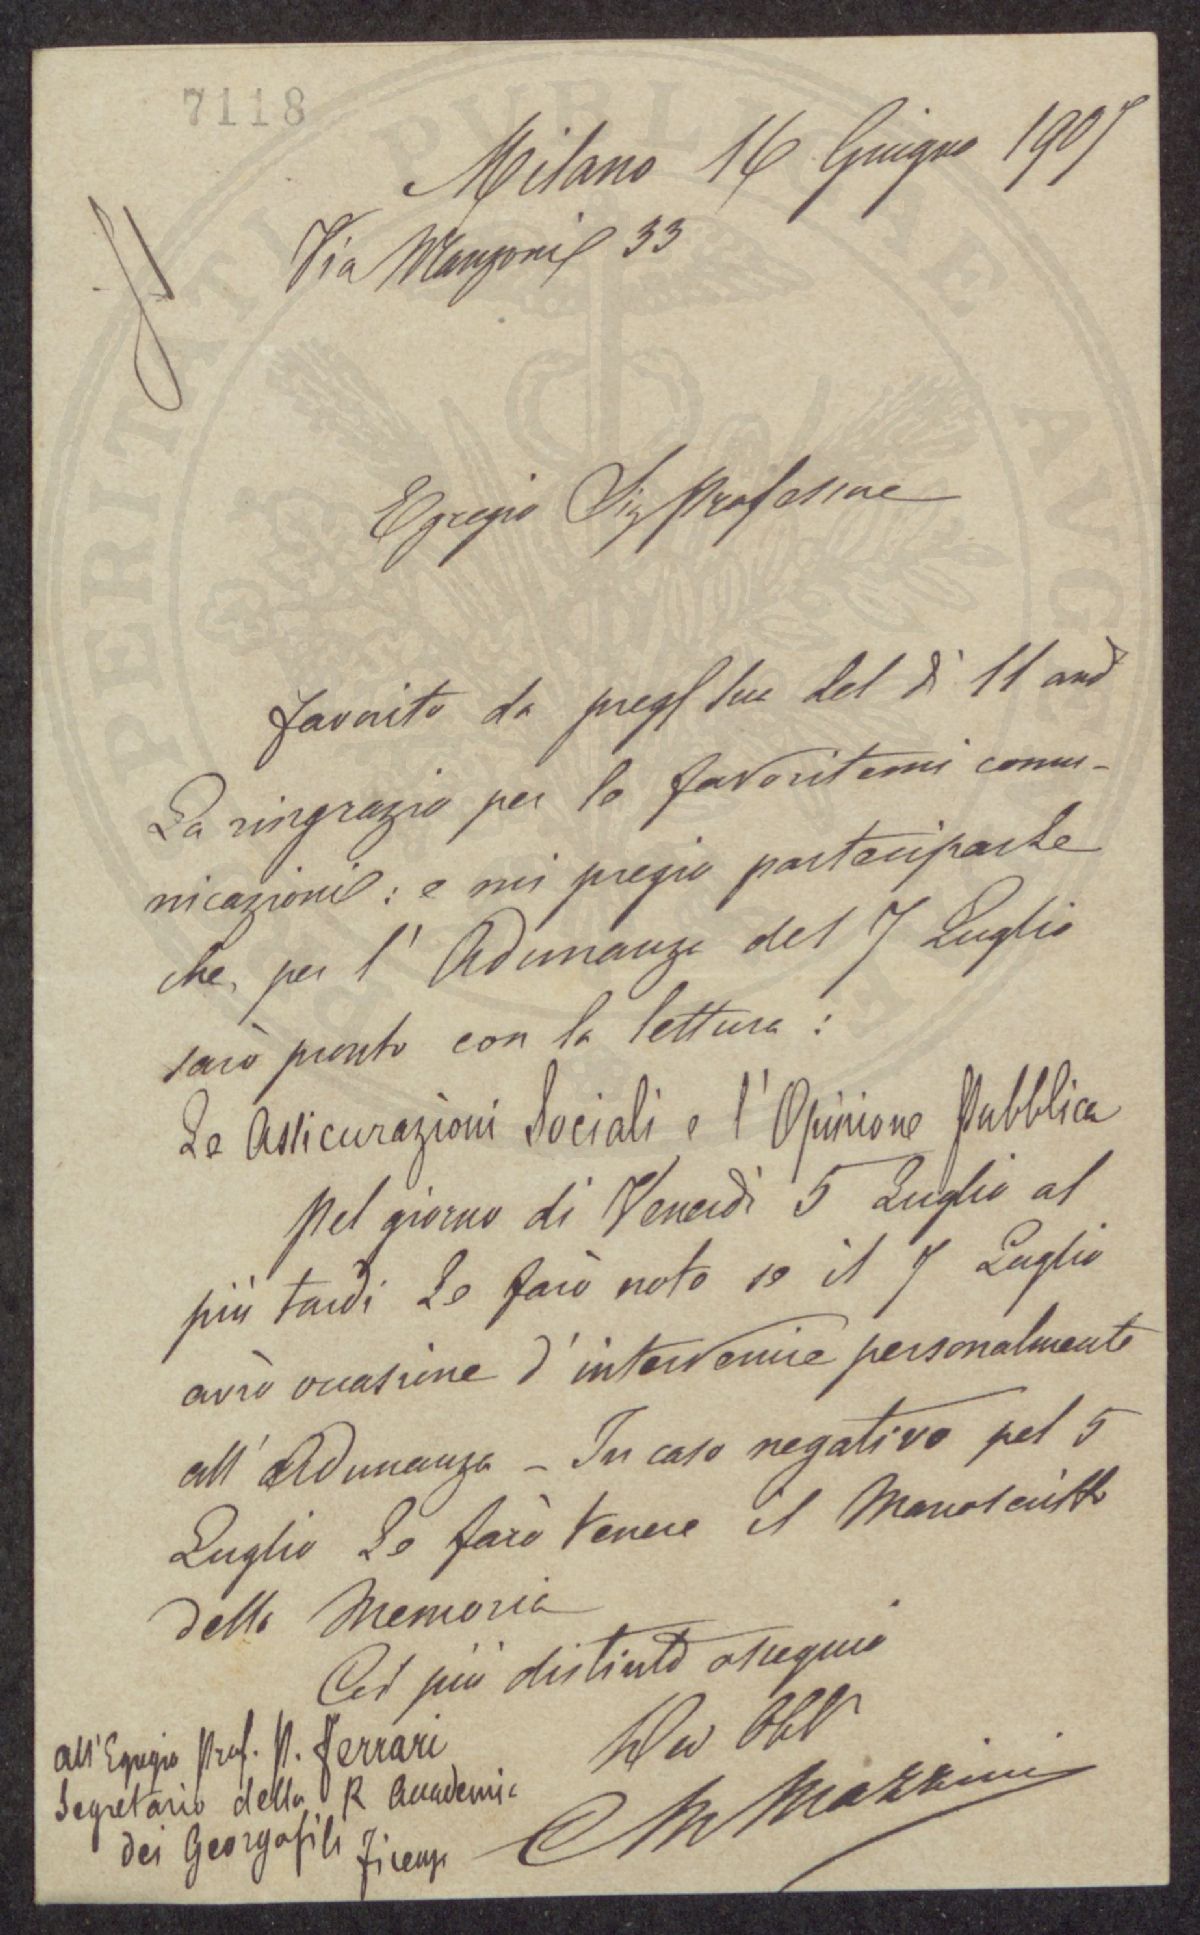 7118
Milano 16 Giugno 1907
Via Manzoni 33
Egregio Sig Professore
favorito da preg sua del dì 11 and
La ringrazio per le favoritemi comu-
nicazioni : e mi pregio parteciparLe
che, per l' Adunanza del 7 Luglio
sarò pronto con la lettura :
Le Assicurazioni Sociali e l'Opinione Pubblica
Pel giorno di Venerdì 5 Luglio al
più tardi Le farò noto se il 7 Luglio
avrò occasione d'intervenire personalmente
all'Adunanza - In caso negativo pel 5
Luglio Le farò tenere il Manoscritto
della Memoria
Col più distinto ossequio
Dev Obb
C M Mazzini
All'Egregio Prof. P. Ferrari
Segretario della R Accademia
dei Georgofili Firenze
PROSPERITATI PVBLICAE AVGENDAE